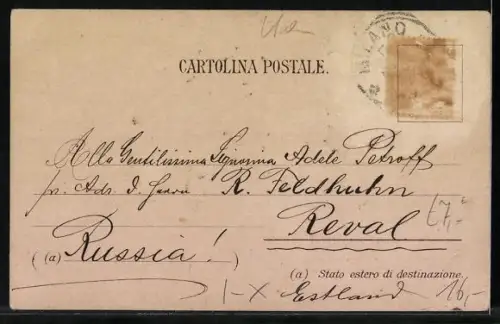 MILANO
CARTOLINA POSTALE.
Alla Gentilissima Signorina Adele Petroff
pr. Ads. d. Herrn R. Feldhuhn
Reval
£7,-
(a) Russia!
(a) Stato estero di destinazione.
1-X Estland 16,-